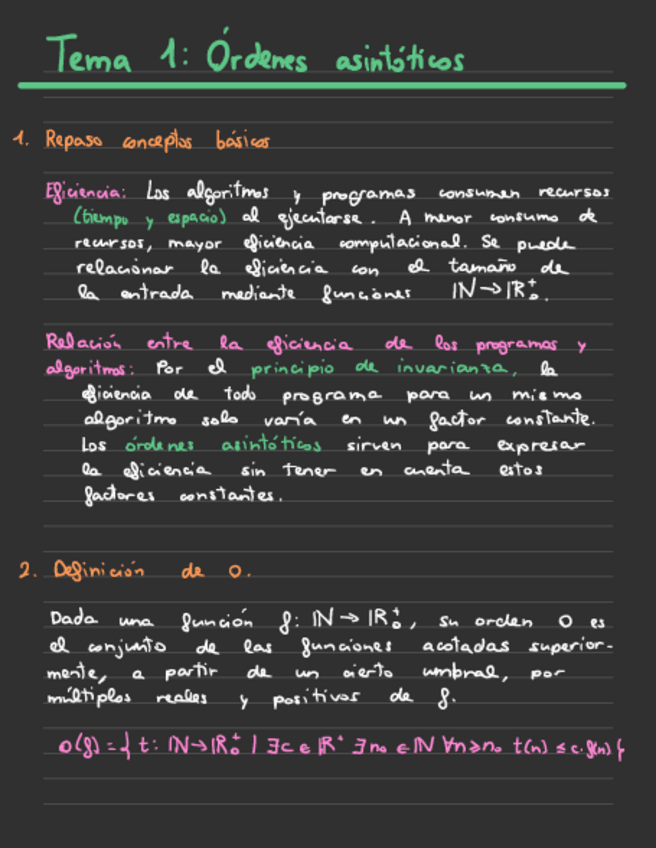 Tema 1: Órdenes asintóticos
1. Repaso conceptos básicos
Eficiencia: Los algoritmos y programas consumen recursos
(tiempo y espacio) al ejecutarse. A menor consumo de
recursos, mayor eficiencia computacional. Se puede
relacionar la eficiencia con el tamaño de
la entrada mediante funciones ℕ→ℝ₀⁺.
Relación entre la eficiencia de los programas y
algoritmos: Por el principio de invarianza, la
eficiencia de todo programa para un mismo
algoritmo solo varía en un factor constante.
Los órdenes asintóticos sirven para expresar
la eficiencia sin tener en cuenta estos
factores constantes.
2. Definición de O.
Dada una función f: ℕ→ℝ₀⁺, su orden O es
el conjunto de las funciones acotadas superior-
mente, a partir de un cierto umbral, por
múltiplos reales y positivos de f.
O(f) = { t: ℕ→ℝ₀⁺ | ∃c ∈ ℝ⁺ ∃n₀ ∈ ℕ ∀n≥n₀ t(n) ≤ c·f(n) }